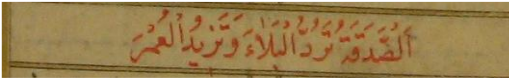 اَلصَّدَقَةُ تَرُدُّ الْبَلَاءَ وَتَزِيدُ الْعُمْرَ